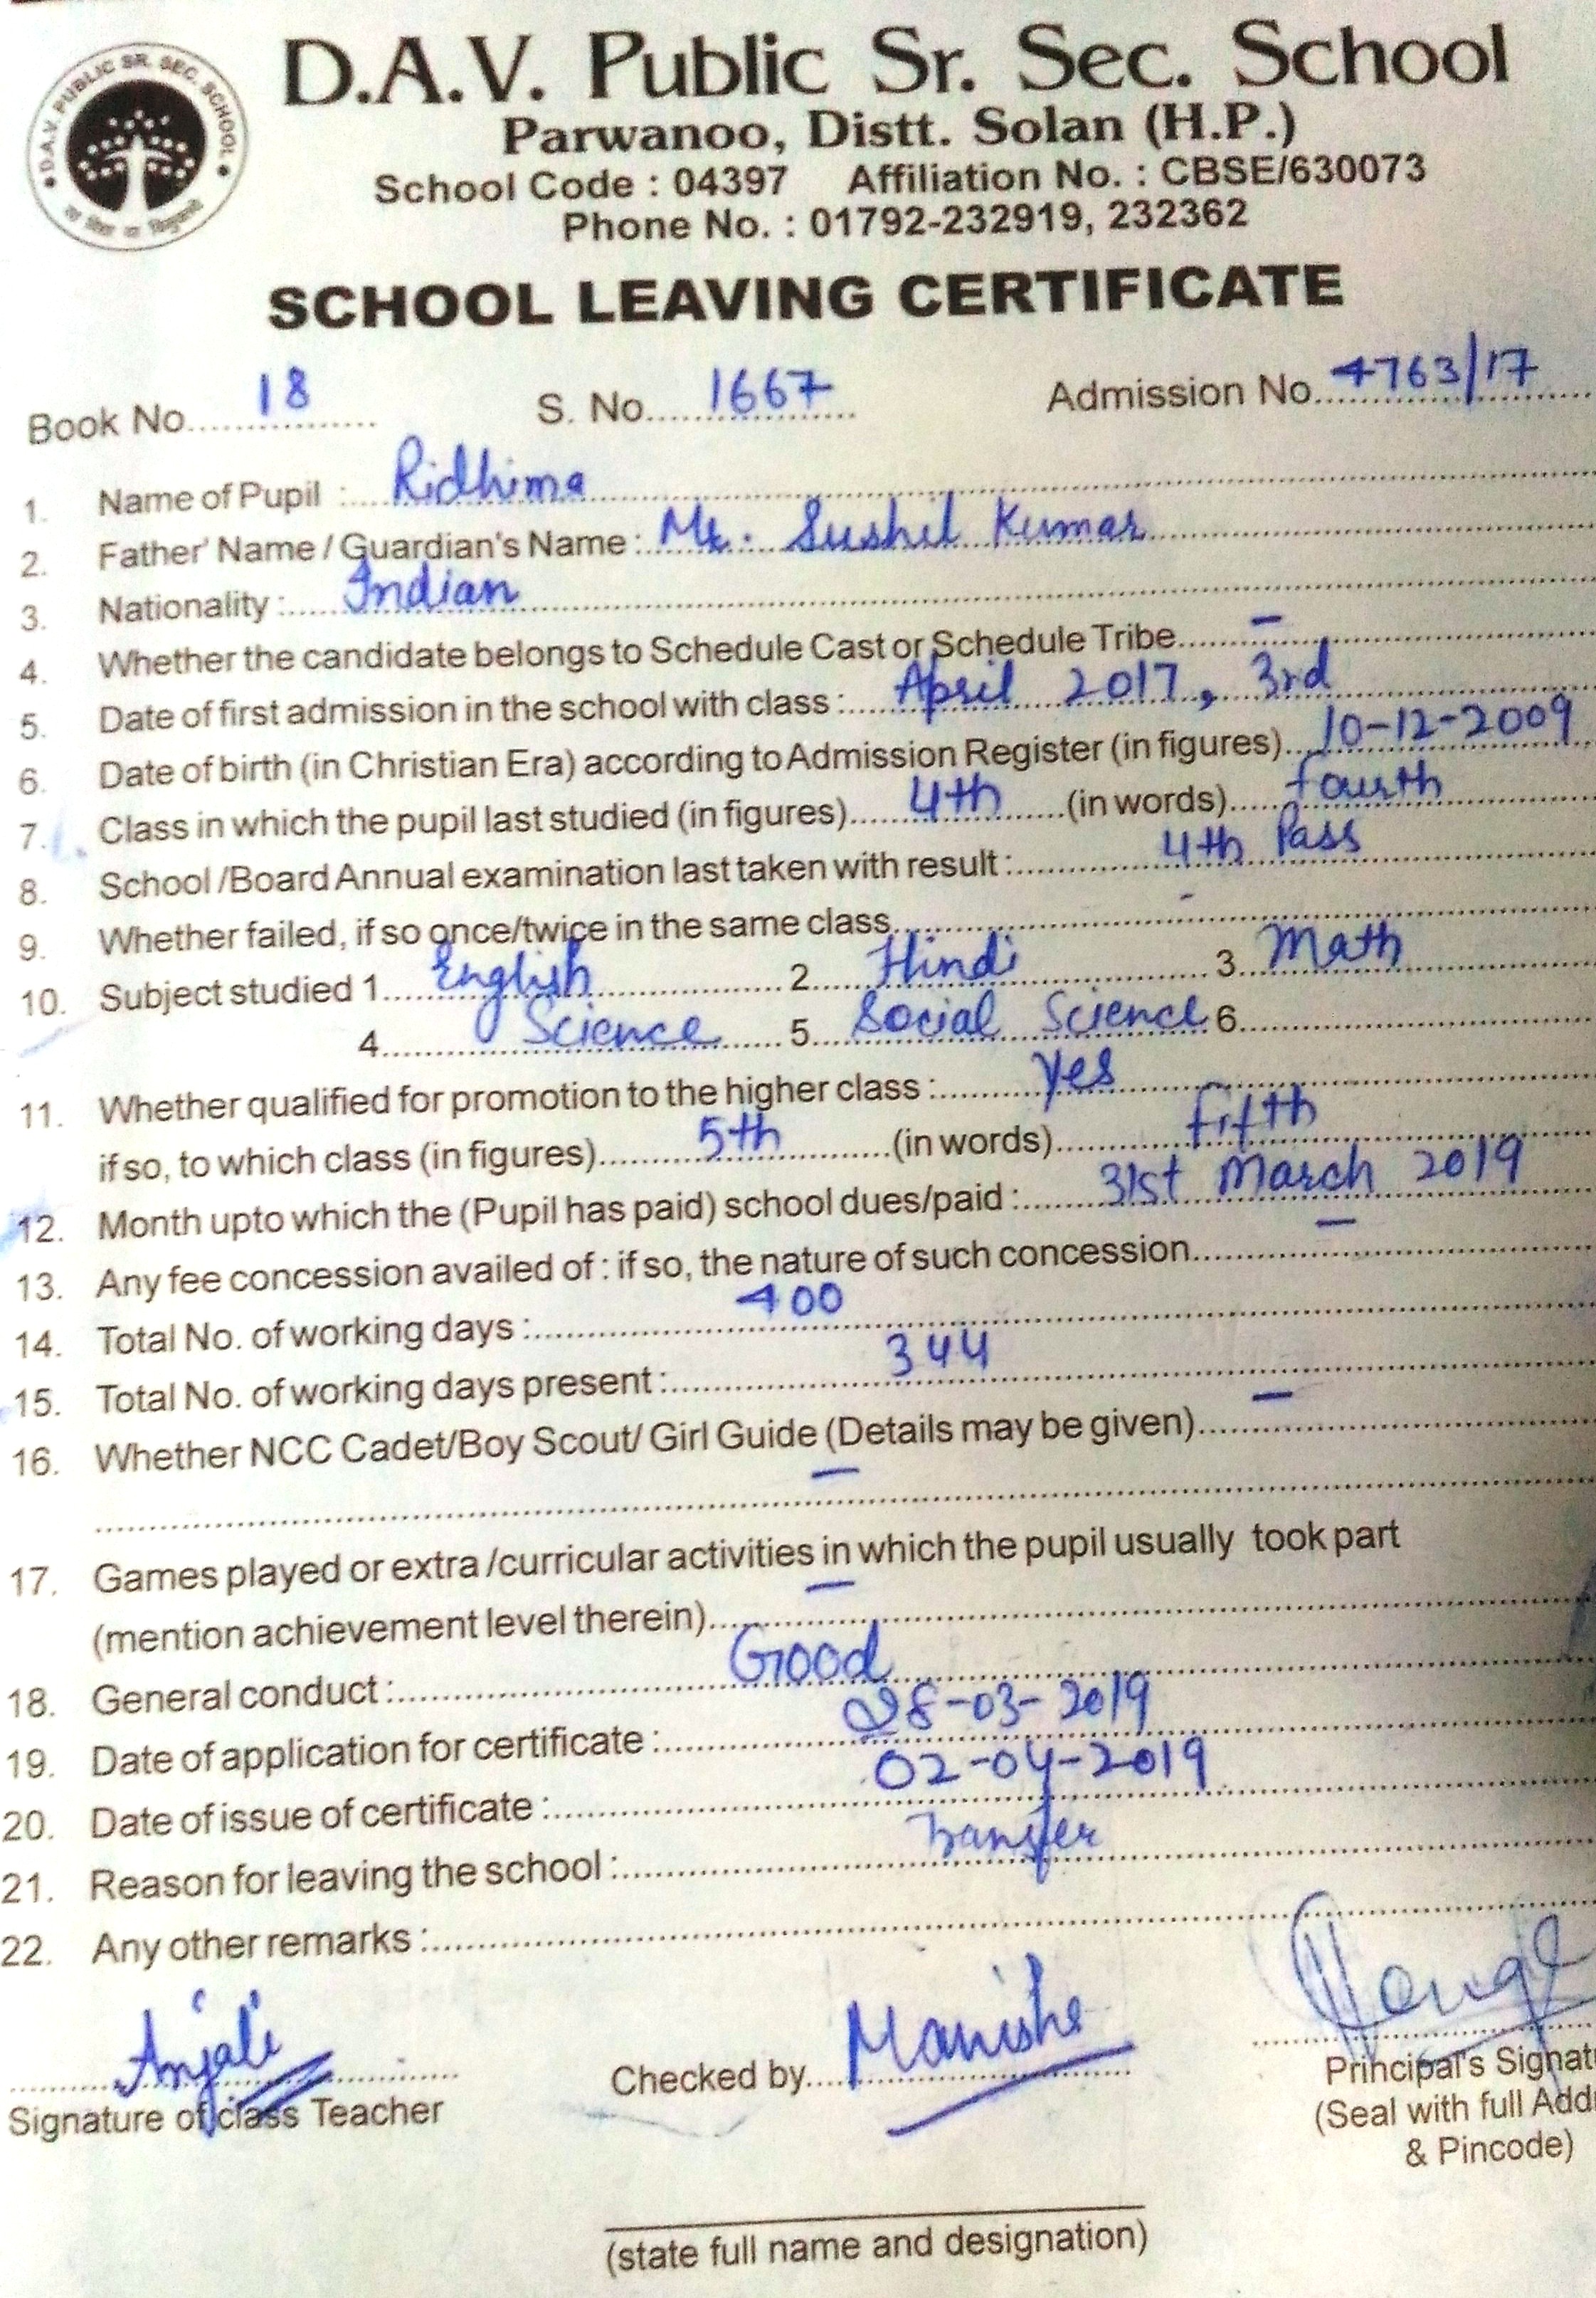 D.A.V. PUBLIC SR. SEC. SCHOOL
D.A.V. Public Sr. Sec. School
Parwanoo, Distt. Solan (H.P.)
School Code : 04397 Affiliation No. : CBSE/630073
Phone No. : 01792-232919, 232362
SCHOOL LEAVING CERTIFICATE
Book No. 18 S. No. 1667 Admission No. 4763/17
1. Name of Pupil : Ridhima
2. Father' Name / Guardian's Name : Mr. Sushil Kumar
3. Nationality : Indian
4. Whether the candidate belongs to Schedule Cast or Schedule Tribe –
5. Date of first admission in the school with class : April 2017, 3rd
6. Date of birth (in Christian Era) according to Admission Register (in figures) 10-12-2009
7. Class in which the pupil last studied (in figures) 4th (in words) fourth
8. School /Board Annual examination last taken with result : 4th Pass
9. Whether failed, if so once/twice in the same class -
10. Subject studied 1 English 2 Hindi 3 Math
4 Science 5 Social Science 6
11. Whether qualified for promotion to the higher class : Yes
if so, to which class (in figures) 5th (in words) fifth
12. Month upto which the (Pupil has paid) school dues/paid : 31st March 2019
13. Any fee concession availed of : if so, the nature of such concession –
14. Total No. of working days : 400
15. Total No. of working days present : 344
16. Whether NCC Cadet/Boy Scout/ Girl Guide (Details may be given) –
–
17. Games played or extra /curricular activities in which the pupil usually took part
(mention achievement level therein) –
18. General conduct : Good
19. Date of application for certificate : 28-03-2019
20. Date of issue of certificate : 02-04-2019
21. Reason for leaving the school : Transfer
22. Any other remarks :
Anjali
Signature of class Teacher
Checked by Manisha
Principal's Signat
(Seal with full Add
& Pincode)
(state full name and designation)